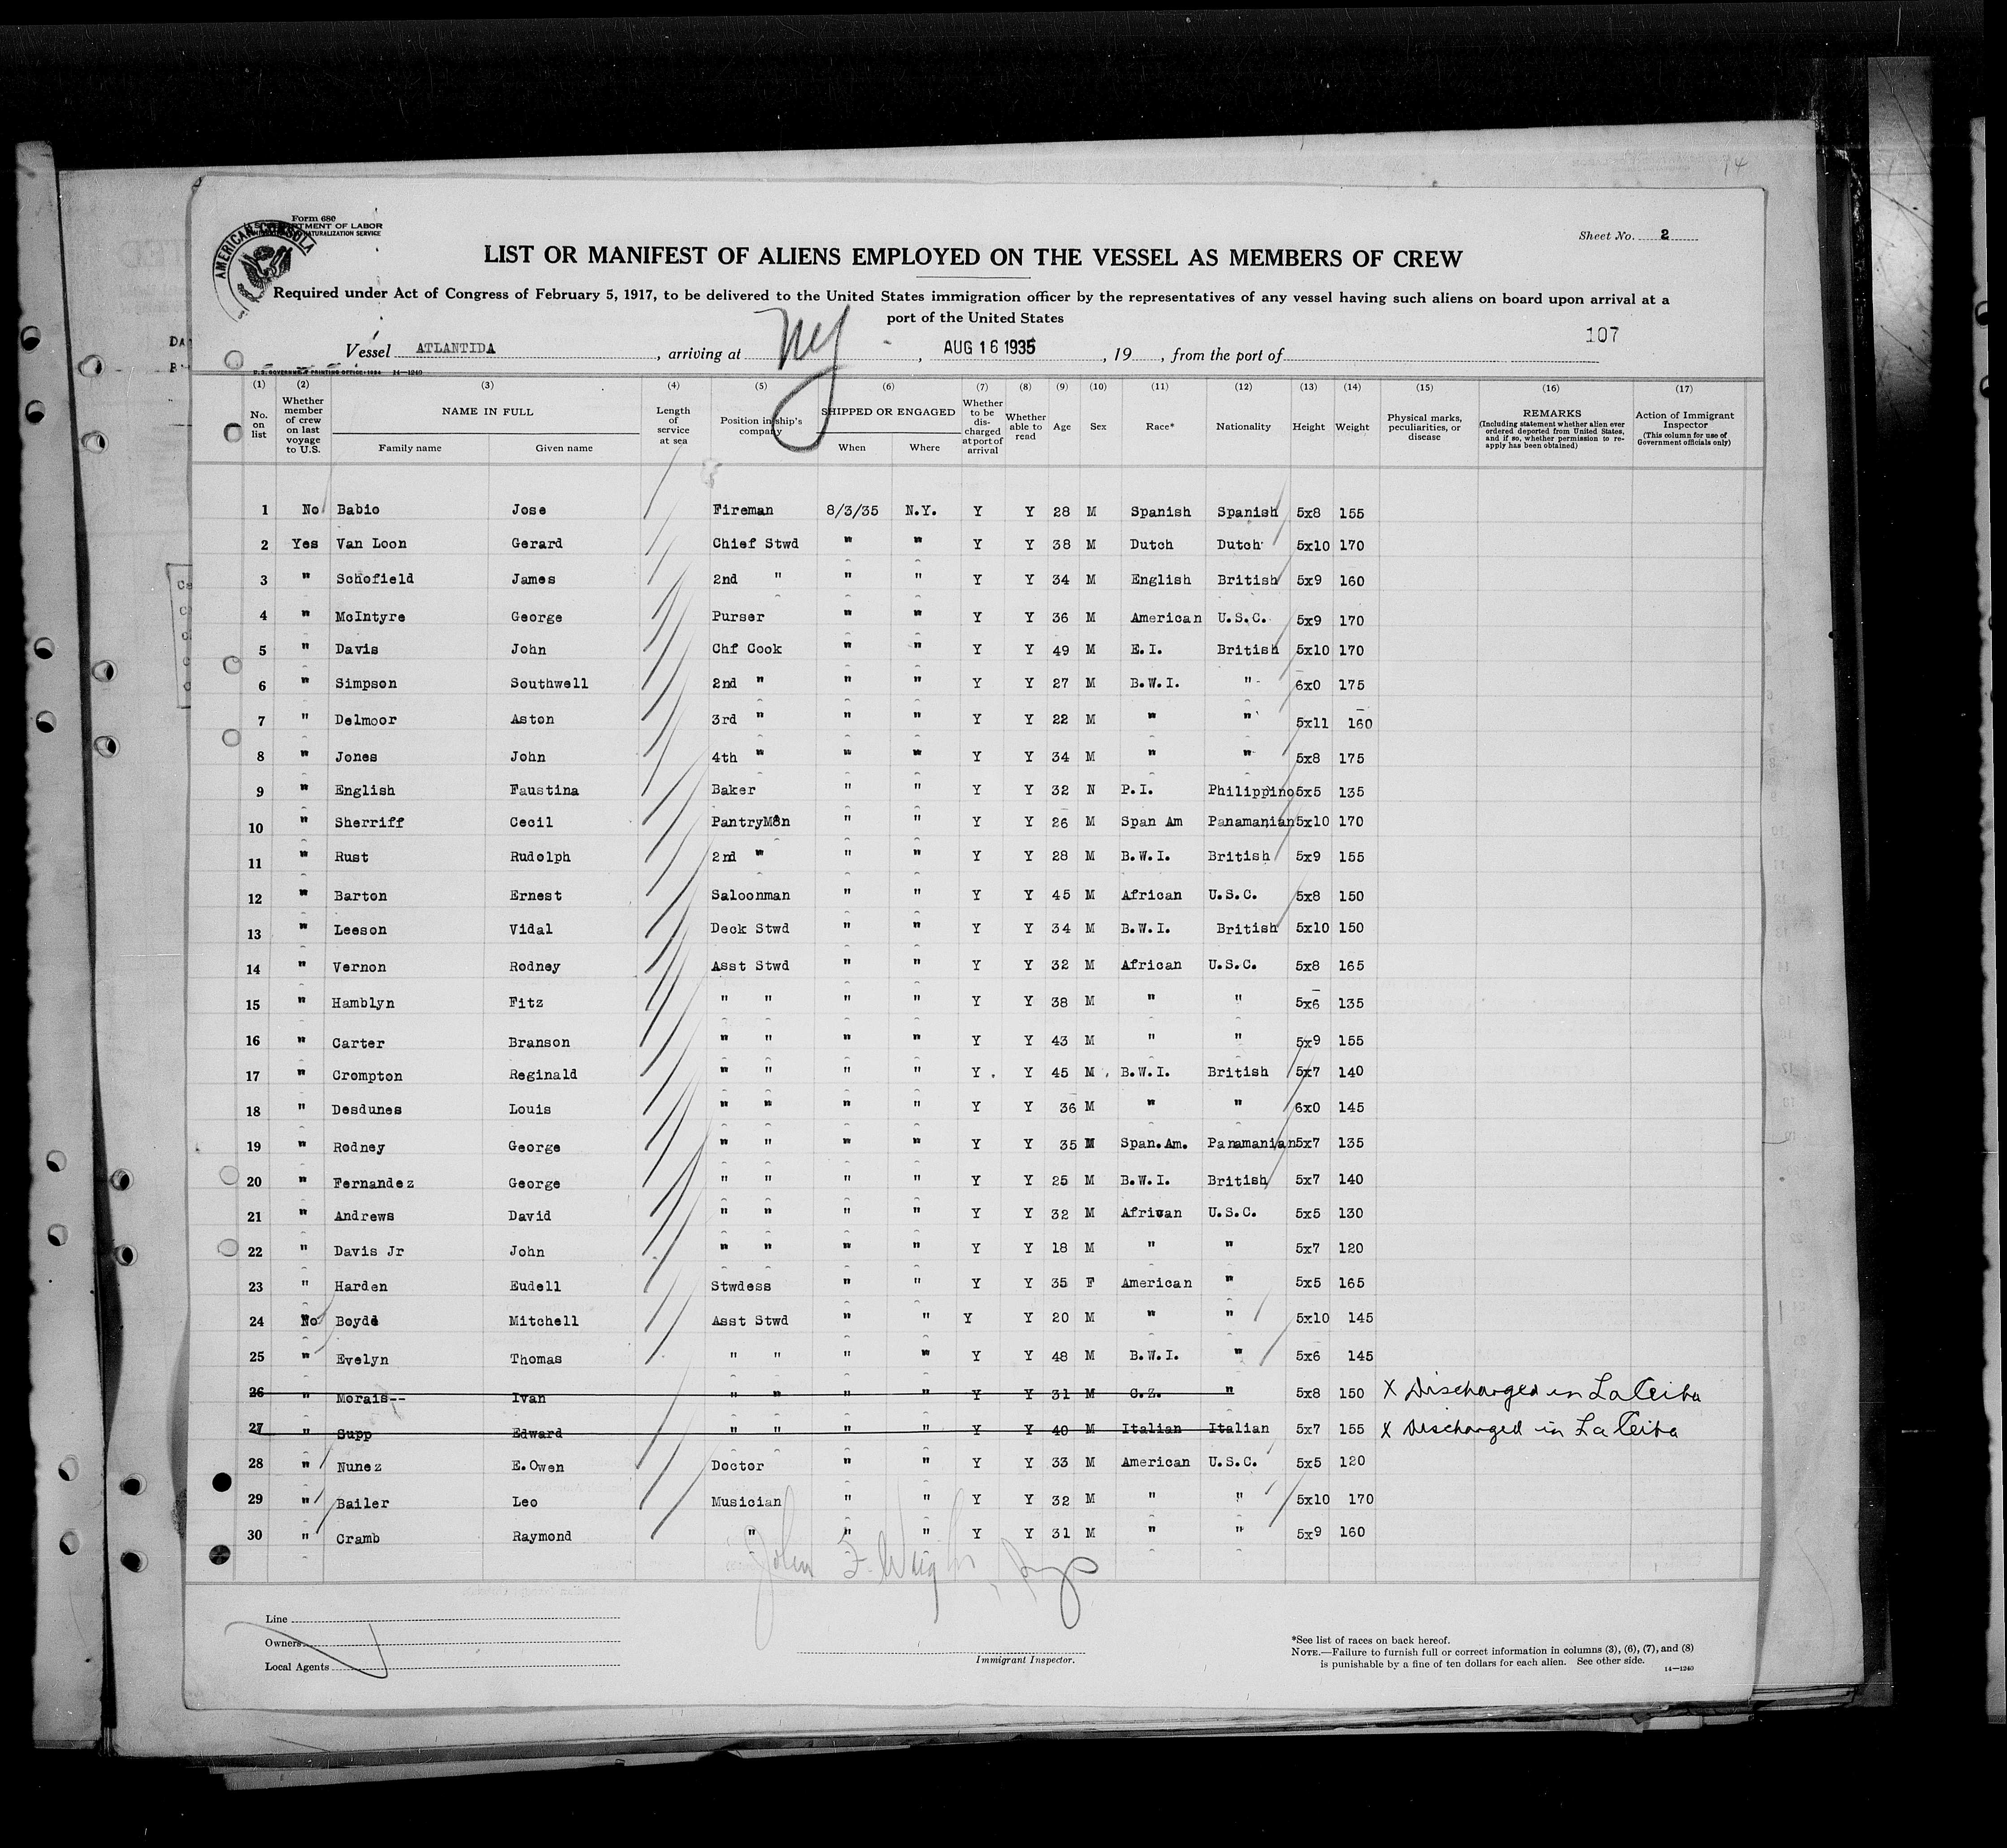 14
Form 680
U.S. DEPARTMENT OF LABOR
NATURALIZATION SERVICE
AMERICAN CONSULA
Sheet No. 2
LIST OR MANIFEST OF ALIENS EMPLOYED ON THE VESSEL AS MEMBERS OF CREW
Required under Act of Congress of February 5, 1917, to be delivered to the United States immigration officer by the representatives of any vessel having such aliens on board upon arrival at a
port of the United States
107
Vessel ATLANTIDA, arriving at NY, AUG 16 1935, 19, from the port of
U.S. GOVERNMENT PRINTING OFFICE: 1934 14—1240
(1) (2) (3) (4) (5) (6) (7) (8) (9) (10) (11) (12) (13) (14) (15) (16) (17)
No. on list
Whether member of crew on last voyage to U.S.
NAME IN FULL
Family name Given name
Length of service at sea
Position in ship's company
SHIPPED OR ENGAGED
When Where
Whether to be discharged at port of arrival
Whether able to read
Age Sex Race* Nationality Height Weight
Physical marks, peculiarities, or disease
REMARKS
(Including statement whether alien ever ordered deported from United States, and if so, whether permission to reapply has been obtained)
Action of Immigrant Inspector
(This column for use of Government officials only)
1 No Babio Jose Fireman 8/3/35 N.Y. Y Y 28 M Spanish Spanish 5x8 155
2 Yes Van Loon Gerard Chief Stwd " " Y Y 38 M Dutch Dutch 5x10 170
3 " Schofield James 2nd " " " Y Y 34 M English British 5x9 160
4 " McIntyre George Purser " " Y Y 36 M American U.S.C. 5x9 170
5 " Davis John Chf Cook " " Y Y 49 M E.I. British 5x10 170
6 " Simpson Southwell 2nd " " " Y Y 27 M B.W.I. " 6x0 175
7 " Delmoor Aston 3rd " " " Y Y 22 M " " 5x11 160
8 " Jones John 4th " " " Y Y 34 M " " 5x8 175
9 " English Faustina Baker " " Y Y 32 N P.I. Philippino 5x5 135
10 " Sherriff Cecil PantryMan " " Y Y 26 M Span Am Panamanian 5x10 170
11 " Rust Rudolph 2nd " " " Y Y 28 M B.W.I. British 5x9 155
12 " Barton Ernest Saloonman " " Y Y 45 M African U.S.C. 5x8 150
13 " Leeson Vidal Deck Stwd " " Y Y 34 M B.W.I. British 5x10 150
14 " Vernon Rodney Asst Stwd " " Y Y 32 M African U.S.C. 5x8 165
15 " Hamblyn Fitz " " " " Y Y 38 M " " 5x6 135
16 " Carter Branson " " " " Y Y 43 M " " 5x9 155
17 " Crompton Reginald " " " " Y Y 45 M B.W.I. British 5x7 140
18 " Desdunes Louis " " " " Y Y 36 M " " 6x0 145
19 " Rodney George " " " " Y Y 35 M Span.Am. Panamanian 5x7 135
20 " Fernandez George " " " " Y Y 25 M B.W.I. British 5x7 140
21 " Andrews David " " " " Y Y 32 M African U.S.C. 5x5 130
22 " Davis Jr John " " " " Y Y 18 M " " 5x7 120
23 " Harden Eudell Stwdess " " Y Y 35 F American " 5x5 165
24 No Boydd Mitchell Asst Stwd " " Y Y 20 M " " 5x10 145
25 " Evelyn Thomas " " " " Y Y 48 M B.W.I. " 5x6 145
26 " Morais-- Ivan " " " " Y Y 31 M C.Z. " 5x8 150 X Discharged in La Ceiba
27 " Supp Edward " " " " Y Y 40 M Italian Italian 5x7 155 X Discharged in La Ceiba
28 " Nunez E.Owen Doctor " " Y Y 33 M American U.S.C. 5x5 120
29 " Bailer Leo Musician " " Y Y 32 M " " 5x10 170
30 " Cramb Raymond " " " Y Y 31 M " " 5x9 160
Line
Owners
Local Agents
Immigrant Inspector.
*See list of races on back hereof.
NOTE.—Failure to furnish full or correct information in columns (3), (6), (7), and (8)
is punishable by a fine of ten dollars for each alien. See other side.
14—1240